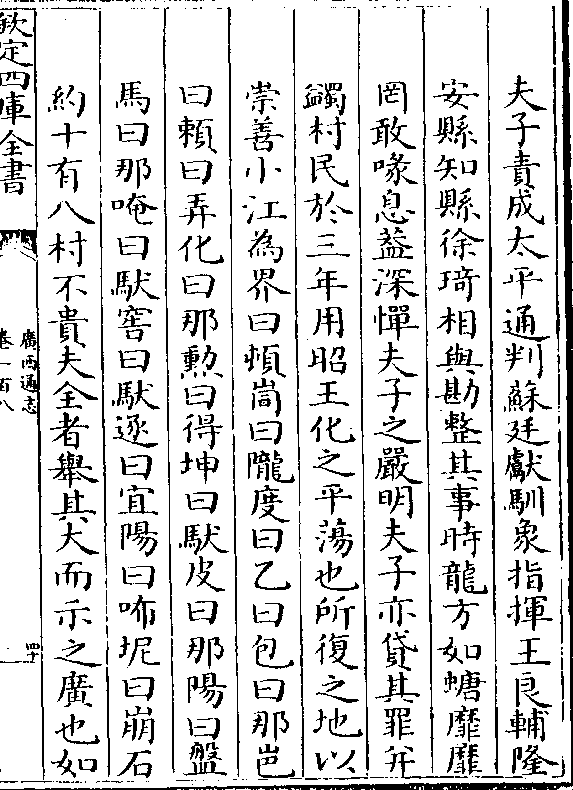 夫子責成太平通判蘇廷獻馴象指揮王良輔隆
安縣知縣徐琦相與勘整其事時龍方如螗靡靡
罔敢喙息葢深憚夫子之嚴明夫子亦貸其罪并
蠲村民於三年用昭王化之平蕩也所復之地以
崇善小江為界曰頓崙曰隴度曰乙曰包曰那邑
曰頼曰弄化曰那勲曰得坤曰馱皮曰那陽曰盤
馬曰那唵曰馱窖曰馱逐曰宜陽曰咘坭曰崩石
約十有八村不貴夫全者舉其大而示之廣也如
欽定四庫全書
廣西通志
卷一百八
四十